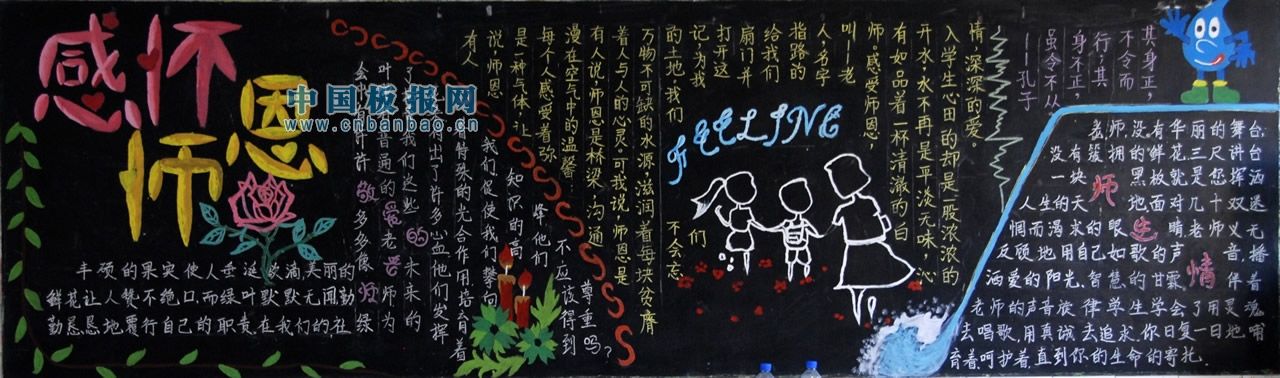 感怀
师恩
中国板报网
www.cnbanbao.cn
丰硕的果实使人垂涎欲滴美丽的
鲜花让人赞不绝口,而绿叶默默无闻勤
勤恳恳地履行自己的职责,在我们的社
会中有许许多多像绿
叶一样普通的老师为
敬爱的老师
有人
说师恩
是一种气体,让
每个人感受着弥
漫在空气中的温馨
有人说师恩是桥梁,沟通
着人与人的心灵。可我说,师恩是
万物不可缺的水源,滋润着每块贫瘠
的土地,我们
不会忘
记,为我们
打开这
扇门,并
给我们
指路的
人,名字
叫—老
师。感受师恩,
有如品着一杯清澈的白
开水,水不再是平淡无味,沁
入学生心田的却是一股浓浓的
情,深深的爱。
FEELING
其身正,
不令而
行;其
身不正,
虽令不从
—孔子
老师,没有华丽的舞台,
没有簇拥的鲜花,三尺讲台
一块黑板就是您挥洒
人生的天地面对几十双迷
惘而渴求的眼睛老师义无
反顾地用自己如歌的声音,播
洒爱的阳光,智慧的甘霖伴着
老师的声音旋律学生学会了用灵魂
去唱歌,用真诚去追求,你日复一日地哺
育着,呵护着,直到你的生命的寄托.
师生情